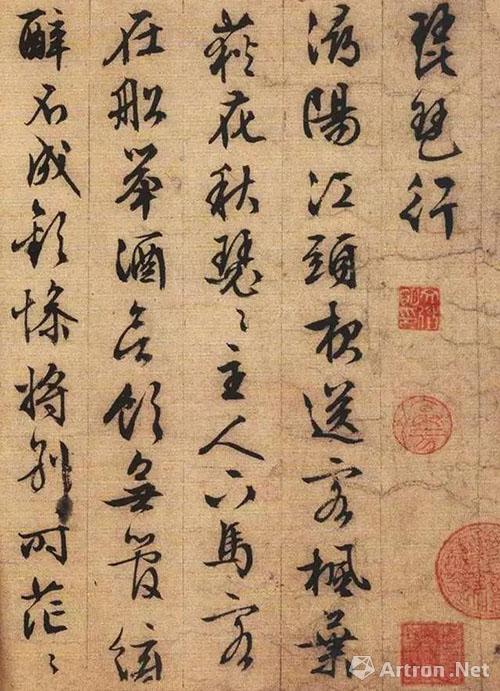 琵琶行
潯陽江頭夜送客楓葉
荻花秋瑟〻主人下馬客
在船舉酒欲飲無管絃
醉不成歡慘將別時茫〻
Artron.Net